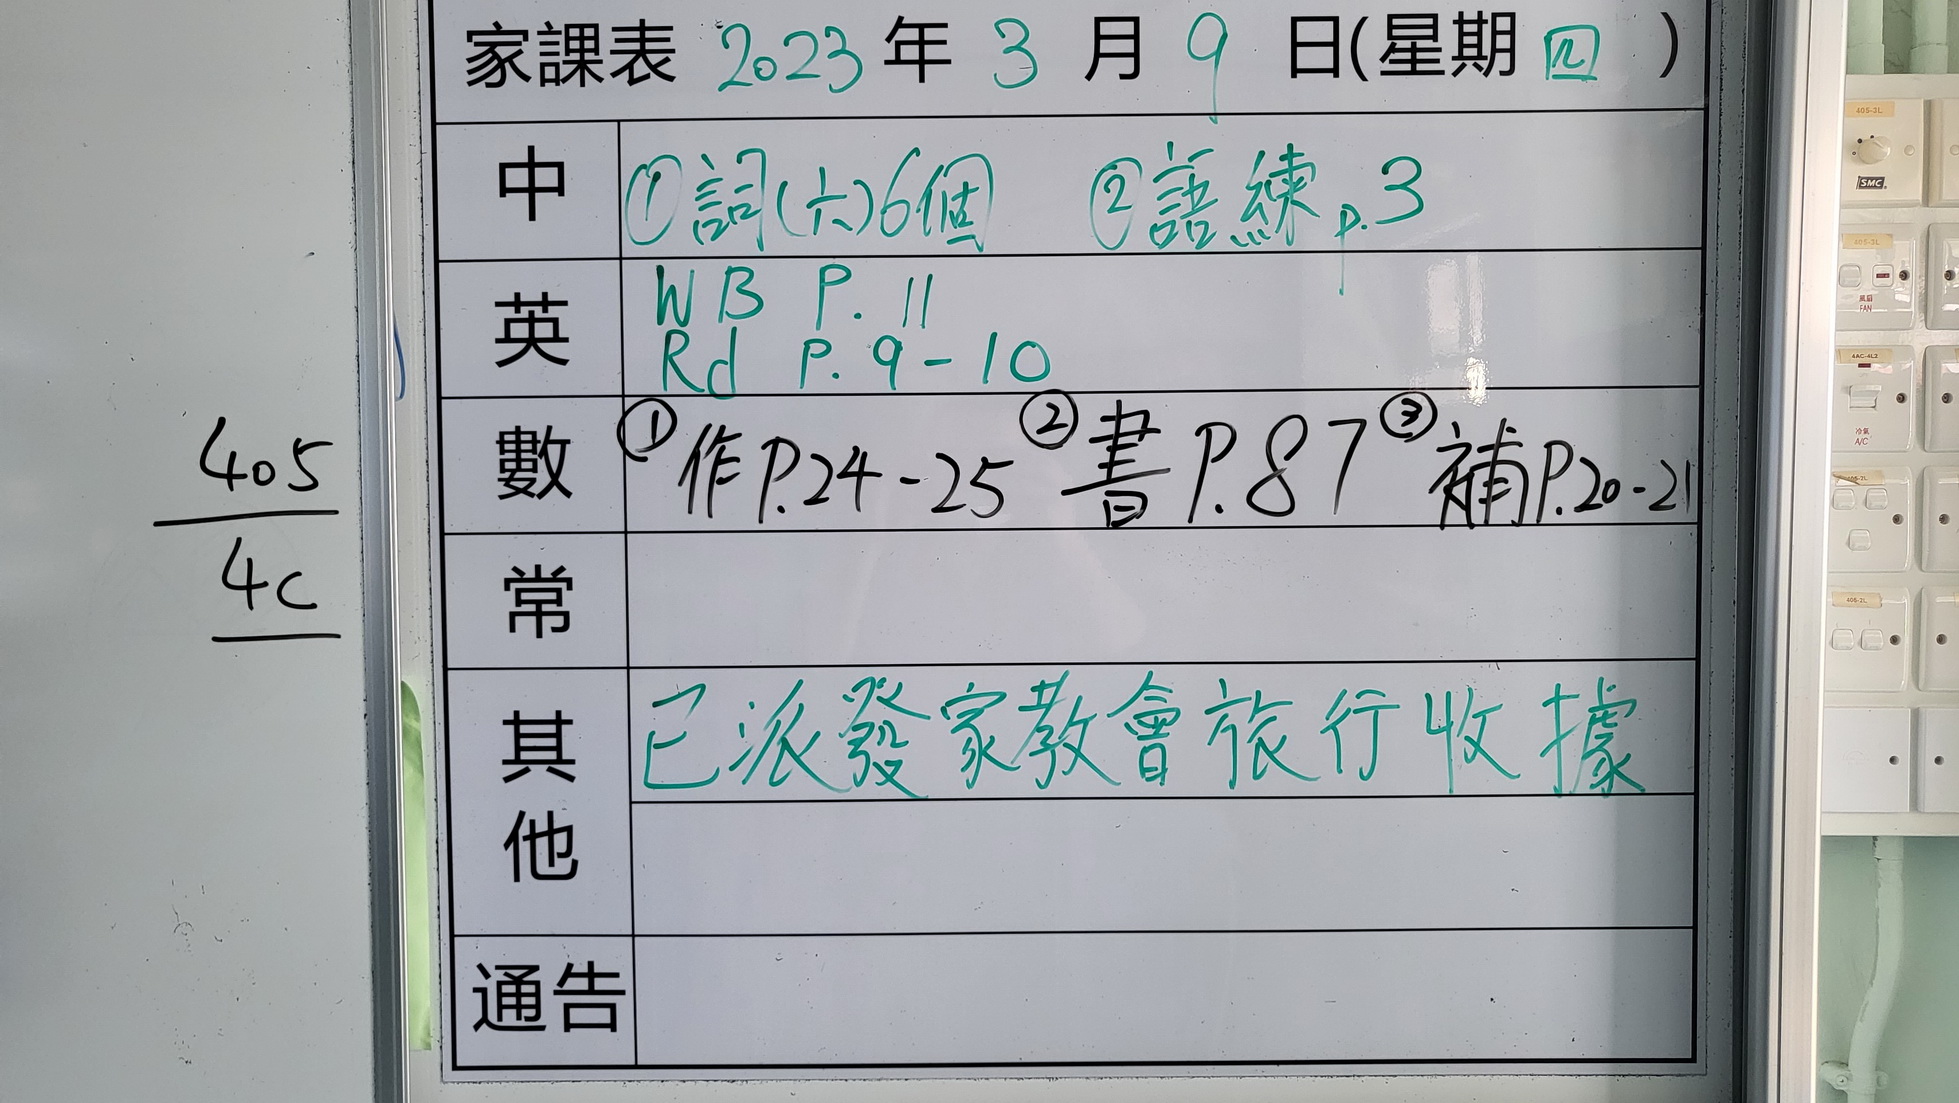 家課表 2023 年 3 月 9 日(星期 四 )
中 ①詞(六)6個 ②語練p.3
英 WB P. 11
Rd P. 9-10
數 ①作P.24-25 ②書P.87 ③補P.20-21
常
其他 已派發家教會旅行收據
通告
405
4C
405-3L
SMC
405-3L
風扇
FAN
4AC-4L2
冷氣
A/C
405-2L